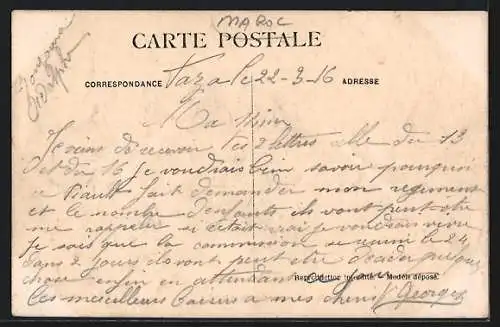 MAROC
CARTE POSTALE
CORRESPONDANCE Taza le 22-3-16 ADRESSE
Ma
Je viens de recevoir tes 2 lettres celle du 13
et du 16 Je voudrais bien savoir pourquoi
ce fait demander mon regiment
et le nombre d'enfants ils vont peut etre
me rappeler si c'etait vrai je voudrais vivre
Je sais que la commission se reuni le 24
dans 2 jours ils vont peut etre decider quelque
chose enfin en attendant
Reproduction interdite. Modèle déposé.
Mes meilleurs baisers a mes cheris Georges